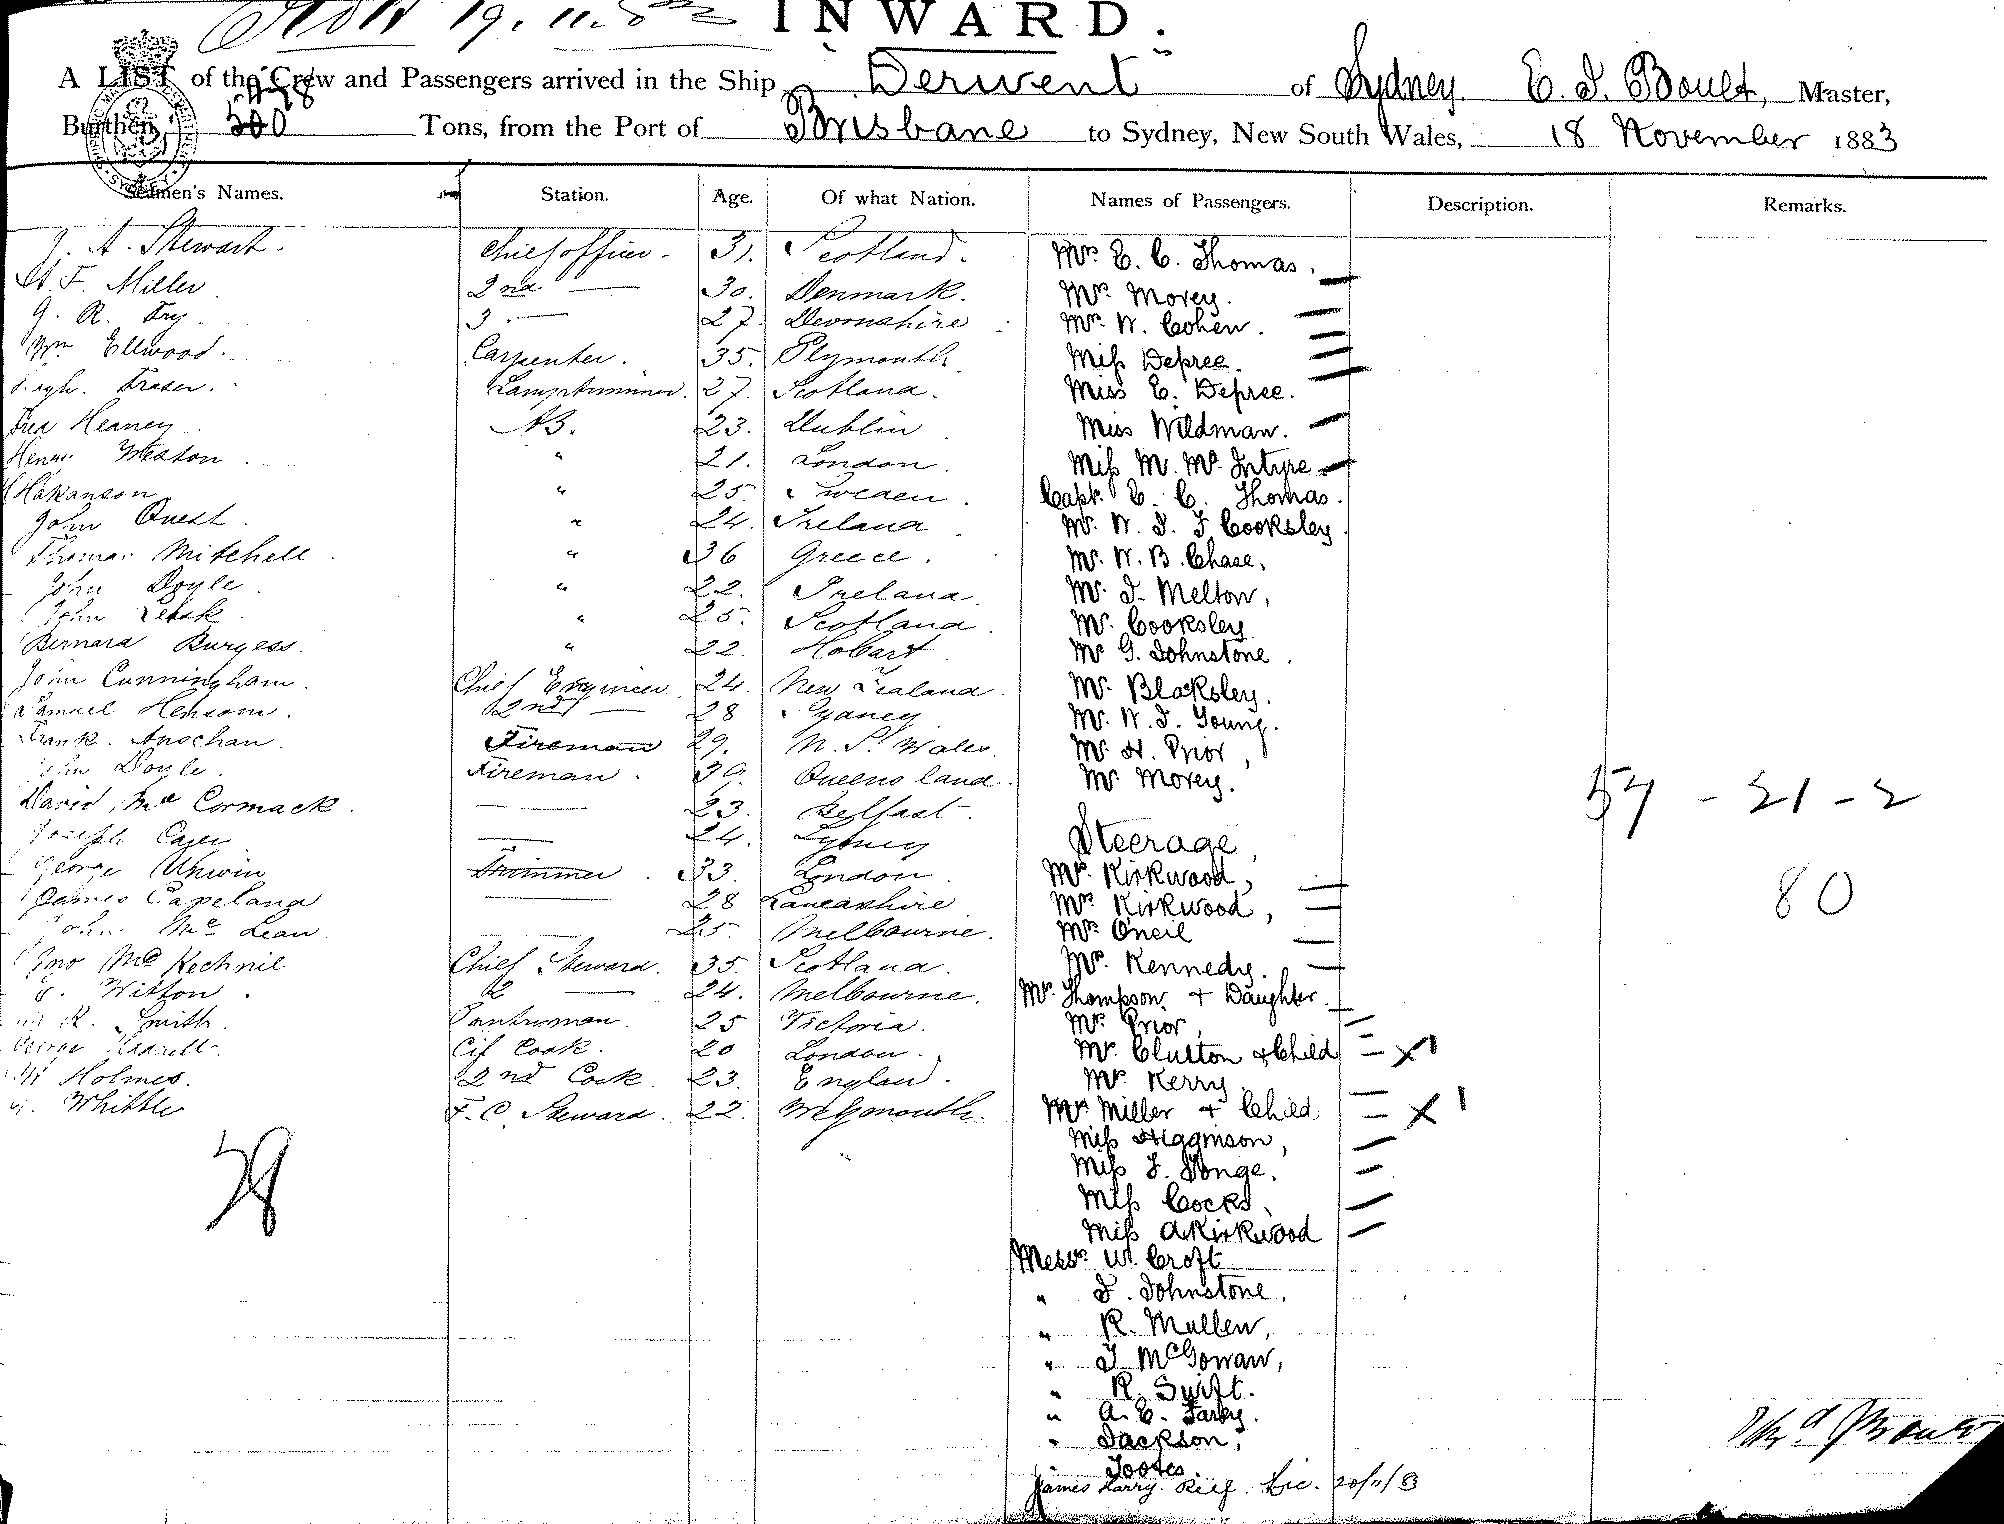 19.11.83
INWARD.
A LIST of the Crew and Passengers arrived in the Ship "Derwent" of Sydney, E. J. Boult, Master,
Burthen 478 500 Tons, from the Port of Brisbane to Sydney, New South Wales, 18 November 1883
Seamen's Names. Station. Age. Of what Nation. Names of Passengers. Description. Remarks.
J. A. Stewart. Chief officer. 31. Scotland. Mrs E. C. Thomas.
A. F. Miller 2nd — 30. Denmark. Mrs Morey.
G. R. Fry. 3. — 27. Devonshire Mrs W. Cohen.
Wm Ellwood. Carpenter. 35. Plymouth Miss Depree.
Hugh. Fraser. Lamptrimmer. 27. Scotland. Miss E. Depree.
Fred Heaney AB. 23. Dublin Miss Wildman.
Henry Weston " 21. London. Miss M. McIntyre
Hakanson " 25. Sweden. Capt. E. C. Thomas.
John Quest. " 24. Ireland Mr. W. J. F Cooksley
Thomas Mitchell " 36 Greece. Mr. W. B. Chase,
John Doyle " 22. Ireland. Mr. J. Melton,
John Leask " 25. Scotland. Mr. Cooksley
Bernard Burgess. " 22. Hobart Mr G. Johnstone.
John Cunningham. Chief Engineer 24. New Zealand. Mr. Blaksley.
Samuel Henson. 2nd — 28 Sydney Mr. W. J. Young.
Frank. Anschau. Fireman 29. N. S. Wales. Mr H. Prior,
John Doyle. Fireman. 39. Queensland. Mr Morey.
David McCormack. — 23. Belfast. 57 - 21 - 2
Joseph — 24. Sydney Steerage,
George Unwin Trimmer. 33. London. Mr. Kirkwood,
James Capeland — 28 Lancashire Mrs Kirkwood, 80
John McLean — 25. Melbourne. Mrs Oneil
Jno McKechnie Chief Steward. 35. Scotland. Mrs. Kennedy.
Witton. 2 — 24. Melbourne. Mrs. Thompson + Daughter.
R. Smith. Pantryman. 25 Victoria. Mrs. Prior,
George Cif Cook. 20 London. Mrs. Clutton + Child X 1
W Holmes. 2nd Cook. 23. England. Mrs Kerry.
Whittle F. C. Steward. 22. Weymouth. Mrs Miller + Child X 1
28
Miss Higginson,
Miss J. Tonge.
Miss Cocks,
Miss A Kirkwood
Messrs W. Croft
" J. Johnstone,
" R. Mullen,
" J McGowan,
" R. Swift.
" A. E. Farley.
" Jackson,
" Tootes.
James Larry. Rieg. Lic. 20/11/83